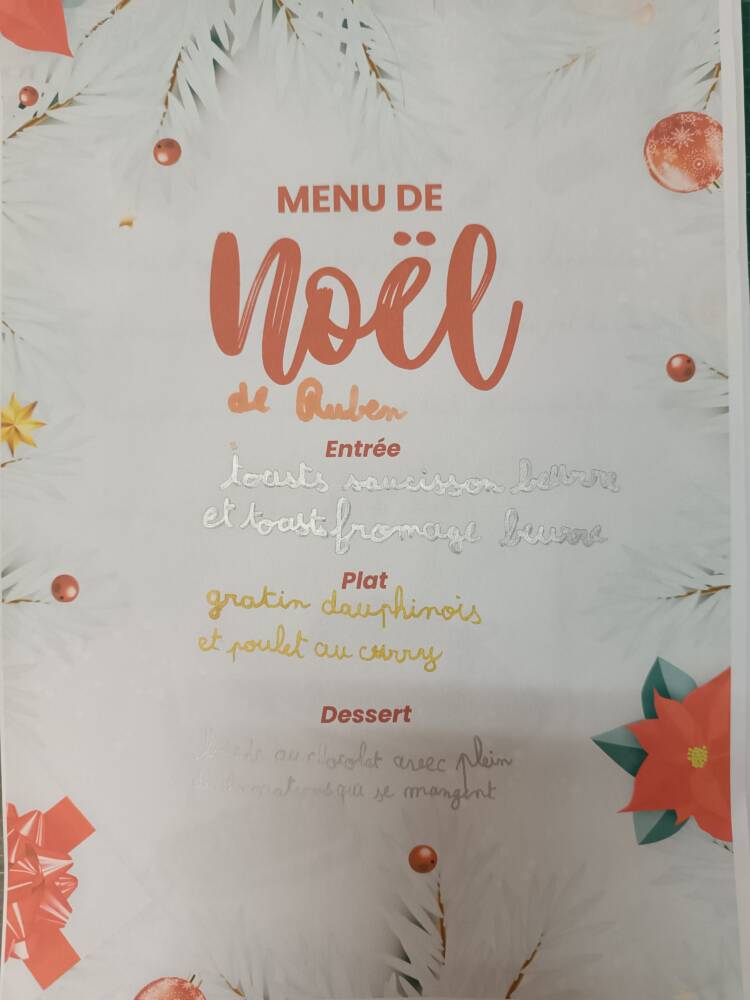 MENU DE
Noël
de Ruben
Entrée
toasts saucisson beurre
et toast fromage beurre
Plat
gratin dauphinois
et poulet au curry
Dessert
au chocolat avec plein
qui se mangent